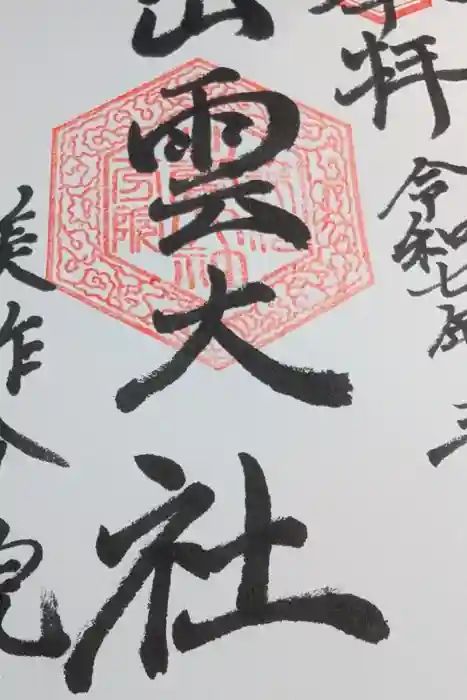 拝
令和七年 三
出雲大社
美作分院